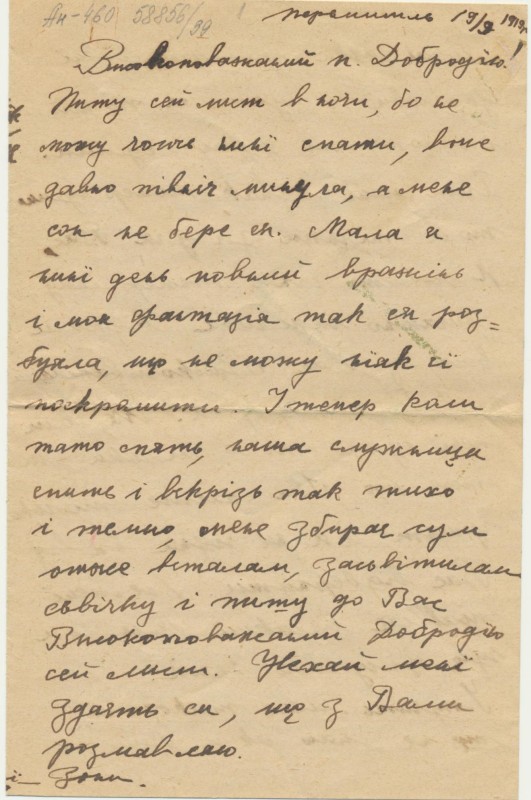 Ан-460 58856/39
Перемишль 19/9 1919р
Високоповажаний п. Добродію!
Пишу сей лист в ночи, бо не
можу чогось нині спати, вже
давно північ минула, а мене
сон не бере ся. Мала я
нині день повний вражінь
і моя фантазія так ся роз=
буяла, що не можу ніяк її
поскромити. І тепер коли
тато спить, наша служниця
спить і вскрізь так тихо
і темно, мене збирає сум
отже всталам, засьвітилам
сьвічку і пишу до Вас
Високоповажаний Добродію
сей лист. Нехай мені
здаєть ся, що з Вами
розмавляю.
Зоня.